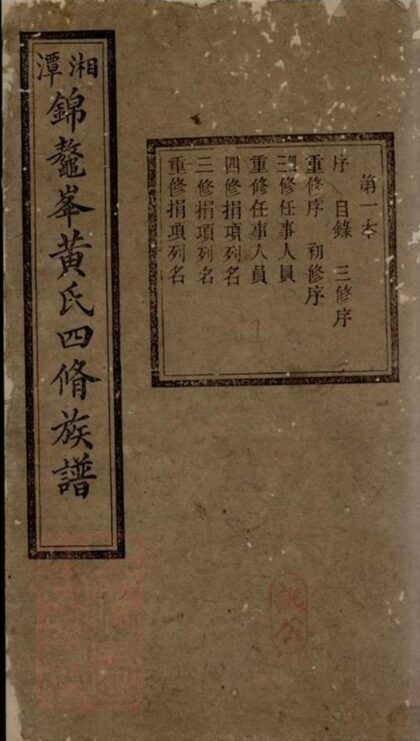 湘潭
錦鼇峯黃氏四脩族譜
第一本
序 目錄 三修序
重修序 初修序
修任事人員
重修任事人員
四修捐項列名
三修捐項列名
重修捐項列名
公